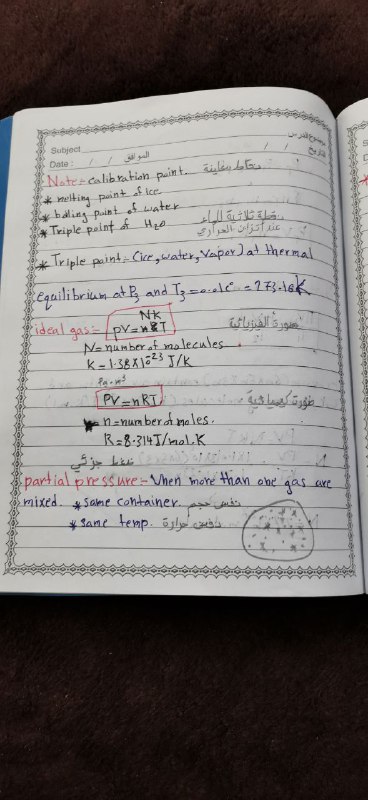 موضوع الدرس
Subject
التاريخ / /
Date : / / الموافق
Note:- calibration point. نقاط معاينة
* melting point of ice
* boiling point of water
* Triple point of H2O نقطة ثلاثية للماء
عند اتزان الحراري
* Triple point:- (ice, water, vapor) at thermal
equilibrium at P3 and T3 = 0.01c° = 273.16K
ideal gas:- Nk
PV = nRT صورة الفيزيائية
N = number of molecules.
K = 1.38 X 10^-23 J/K
Pa . m³
PV = nRT صورة كيميائية
n = number of moles.
R = 8.314 J/mol.K
ضغط جزئي
partial pressure:- When more than one gas are
mixed. * same container. نفس حجم
* same temp. نفس حرارة